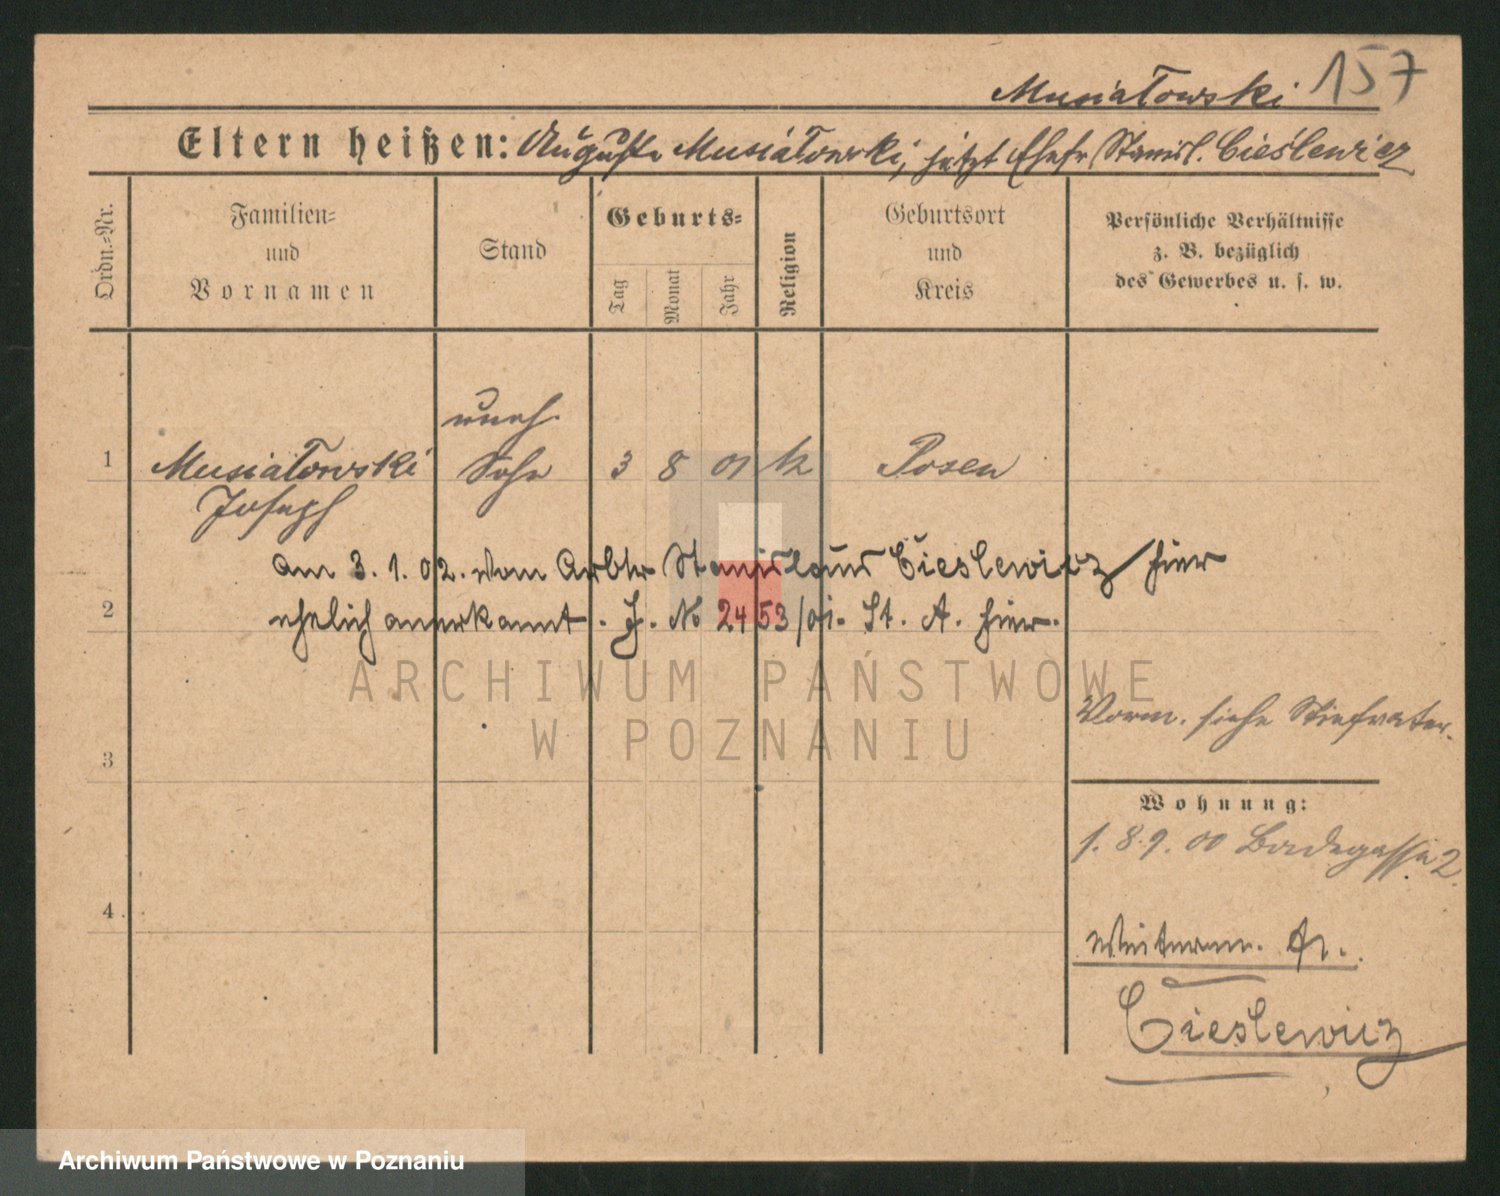 157
Musiatowski
Eltern heißen: Auguste Musiatowski, jetzt Ehefr Stanisl. Cieślewicz
Ordn.=Nr.
Familien=
und
Vornamen
Stand
Geburts=
Tag
Monat
Jahr
Religion
Geburtsort
und
Kreis
Persönliche Verhältnisse
z. B. bezüglich
des Gewerbes u. s. w.
uneh.
1 Musiatowski Sohn 3 8 01 k Posen
Joseph
am 3. 1. 02. vom Arbtr Stanislaus Cieslewicz hier
2 ehelich anerkannt. J. № 2453/01. St. A. hier.
ARCHIWUM PAŃSTWOWE
W POZNANIU
Vorm. siehe Stiefvater.
3
Wohnung:
1. 8. 9. 00 Badegasse 2.
4
Cieslewicz
Archiwum Państwowe w Poznaniu